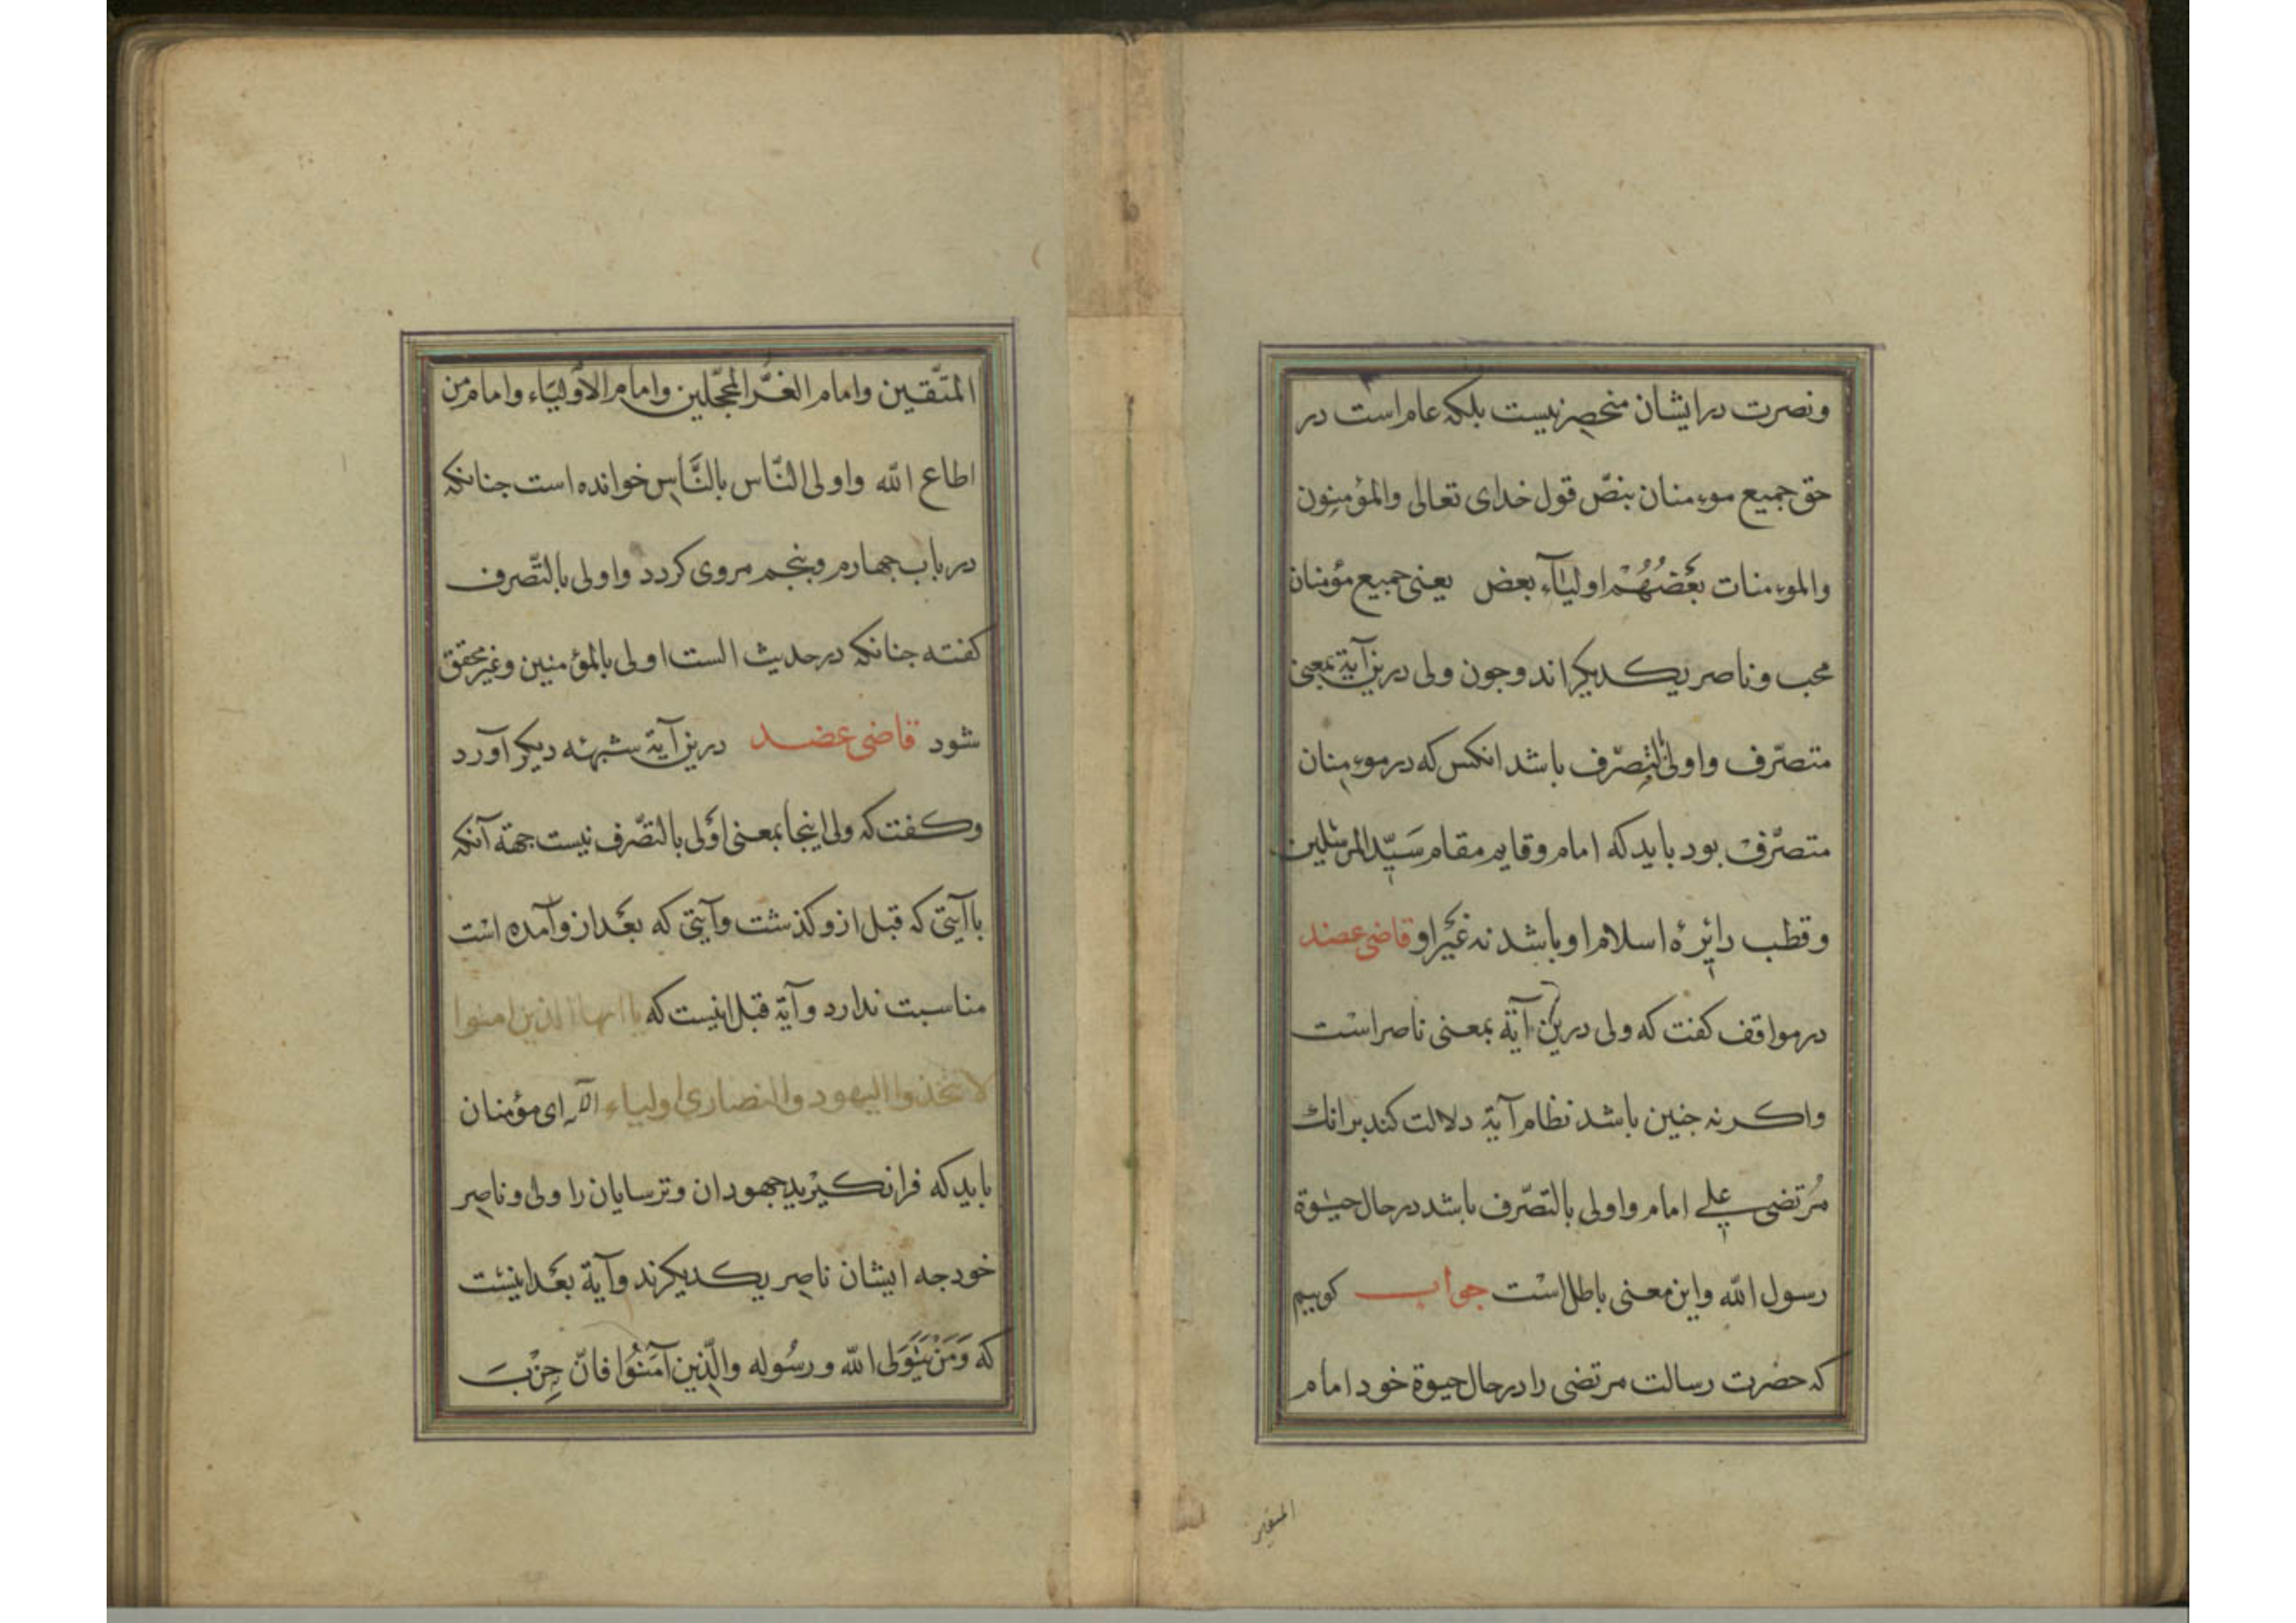 ونصرت در ایشان منحصر نیست بلکه عام است در
حق جمیع موءمنان بنصّ قول خدای تعالی والمؤمنون
والموءمنات بَعْضُهُمْ اولیآء بعض یعنی جمیع مؤمنان
محب وناصر یکدیکراند وجون ولی درین آیة بمعنی
متصرّف واولی بالتصرّف باشد انکس که در موءمنان
متصرّف بود باید که امام وقایم مقام سَیّد المرسَلین
وقطب دائرهٔ اسلام او باشد نه غیْر او قاضی عضد
در مواقف کفت که ولی درین آیة بمعنی ناصر است
واکر نه جنین باشد نظام آیة دلالت کند بر انك
مُرتضی علی امام واولی بالتصّرف باشد در حال حیٰوة
رسول الله واین معنی باطل است جواب کوییم
که حضرت رسالت مرتضی را در حال حیوة خود امام
المتقین
المتّقین وامام الغُرّ المحجّلین وامام الاَولیَاء وامام من
اطاع الله واولی النّاس بالنَّاس خوانده است جنانکه
در باب جهارم وبنجم مروی کردد واولی بالتّصرف
کفته جنانکه در حدیث الست اولی بالمؤمنین وغیر محقق
شود قاضی عضد درین آیة شبهٔه دیکر آورد
وکفت که ولی اینجا بمعنی اوْلی بالتصّرف نیست جهة آنکه
با آیتی که قبل ازو کذشت وآیتی که بعْد ازو آمده است
مناسبت ندارد وآیة قبل اینست که یا ایها الذین امنوا
لا تتخذوا الیهود والنصاری اولیاء الآیه ای مؤمنان
باید که فرا نکیرْید جهودان وترسایان را ولی وناصر
خود جه ایشان ناصر یکدیکرند وآیة بعْد اینست
که وَمَنْ یَتَوَلی الله ورسُوله والّذین آمَنُوا فانّ حِزْبَ